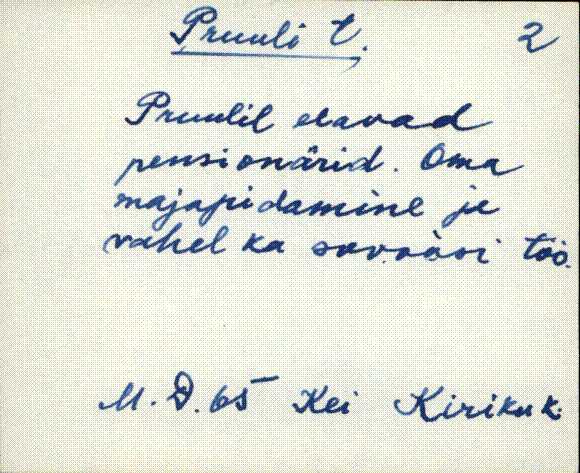 Pruuli t. 2
Pruulil elavad
pensionärid. Oma
majapidamine je
vahel ka sovoosi töö.
M. D. 65 Kei Kirikuk.